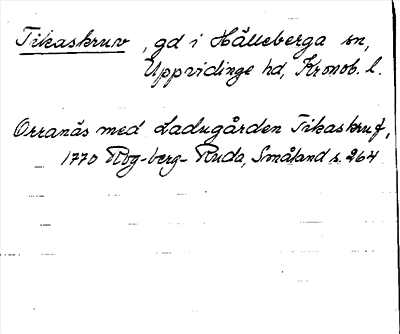 Tikaskruv, gd i Hälleberga sn,
Uppvidinge hd, Kronob. l.
Orranäs med Ladugården Tikaskruf,
1770 Rog-berg- Ruda, Småland s. 264